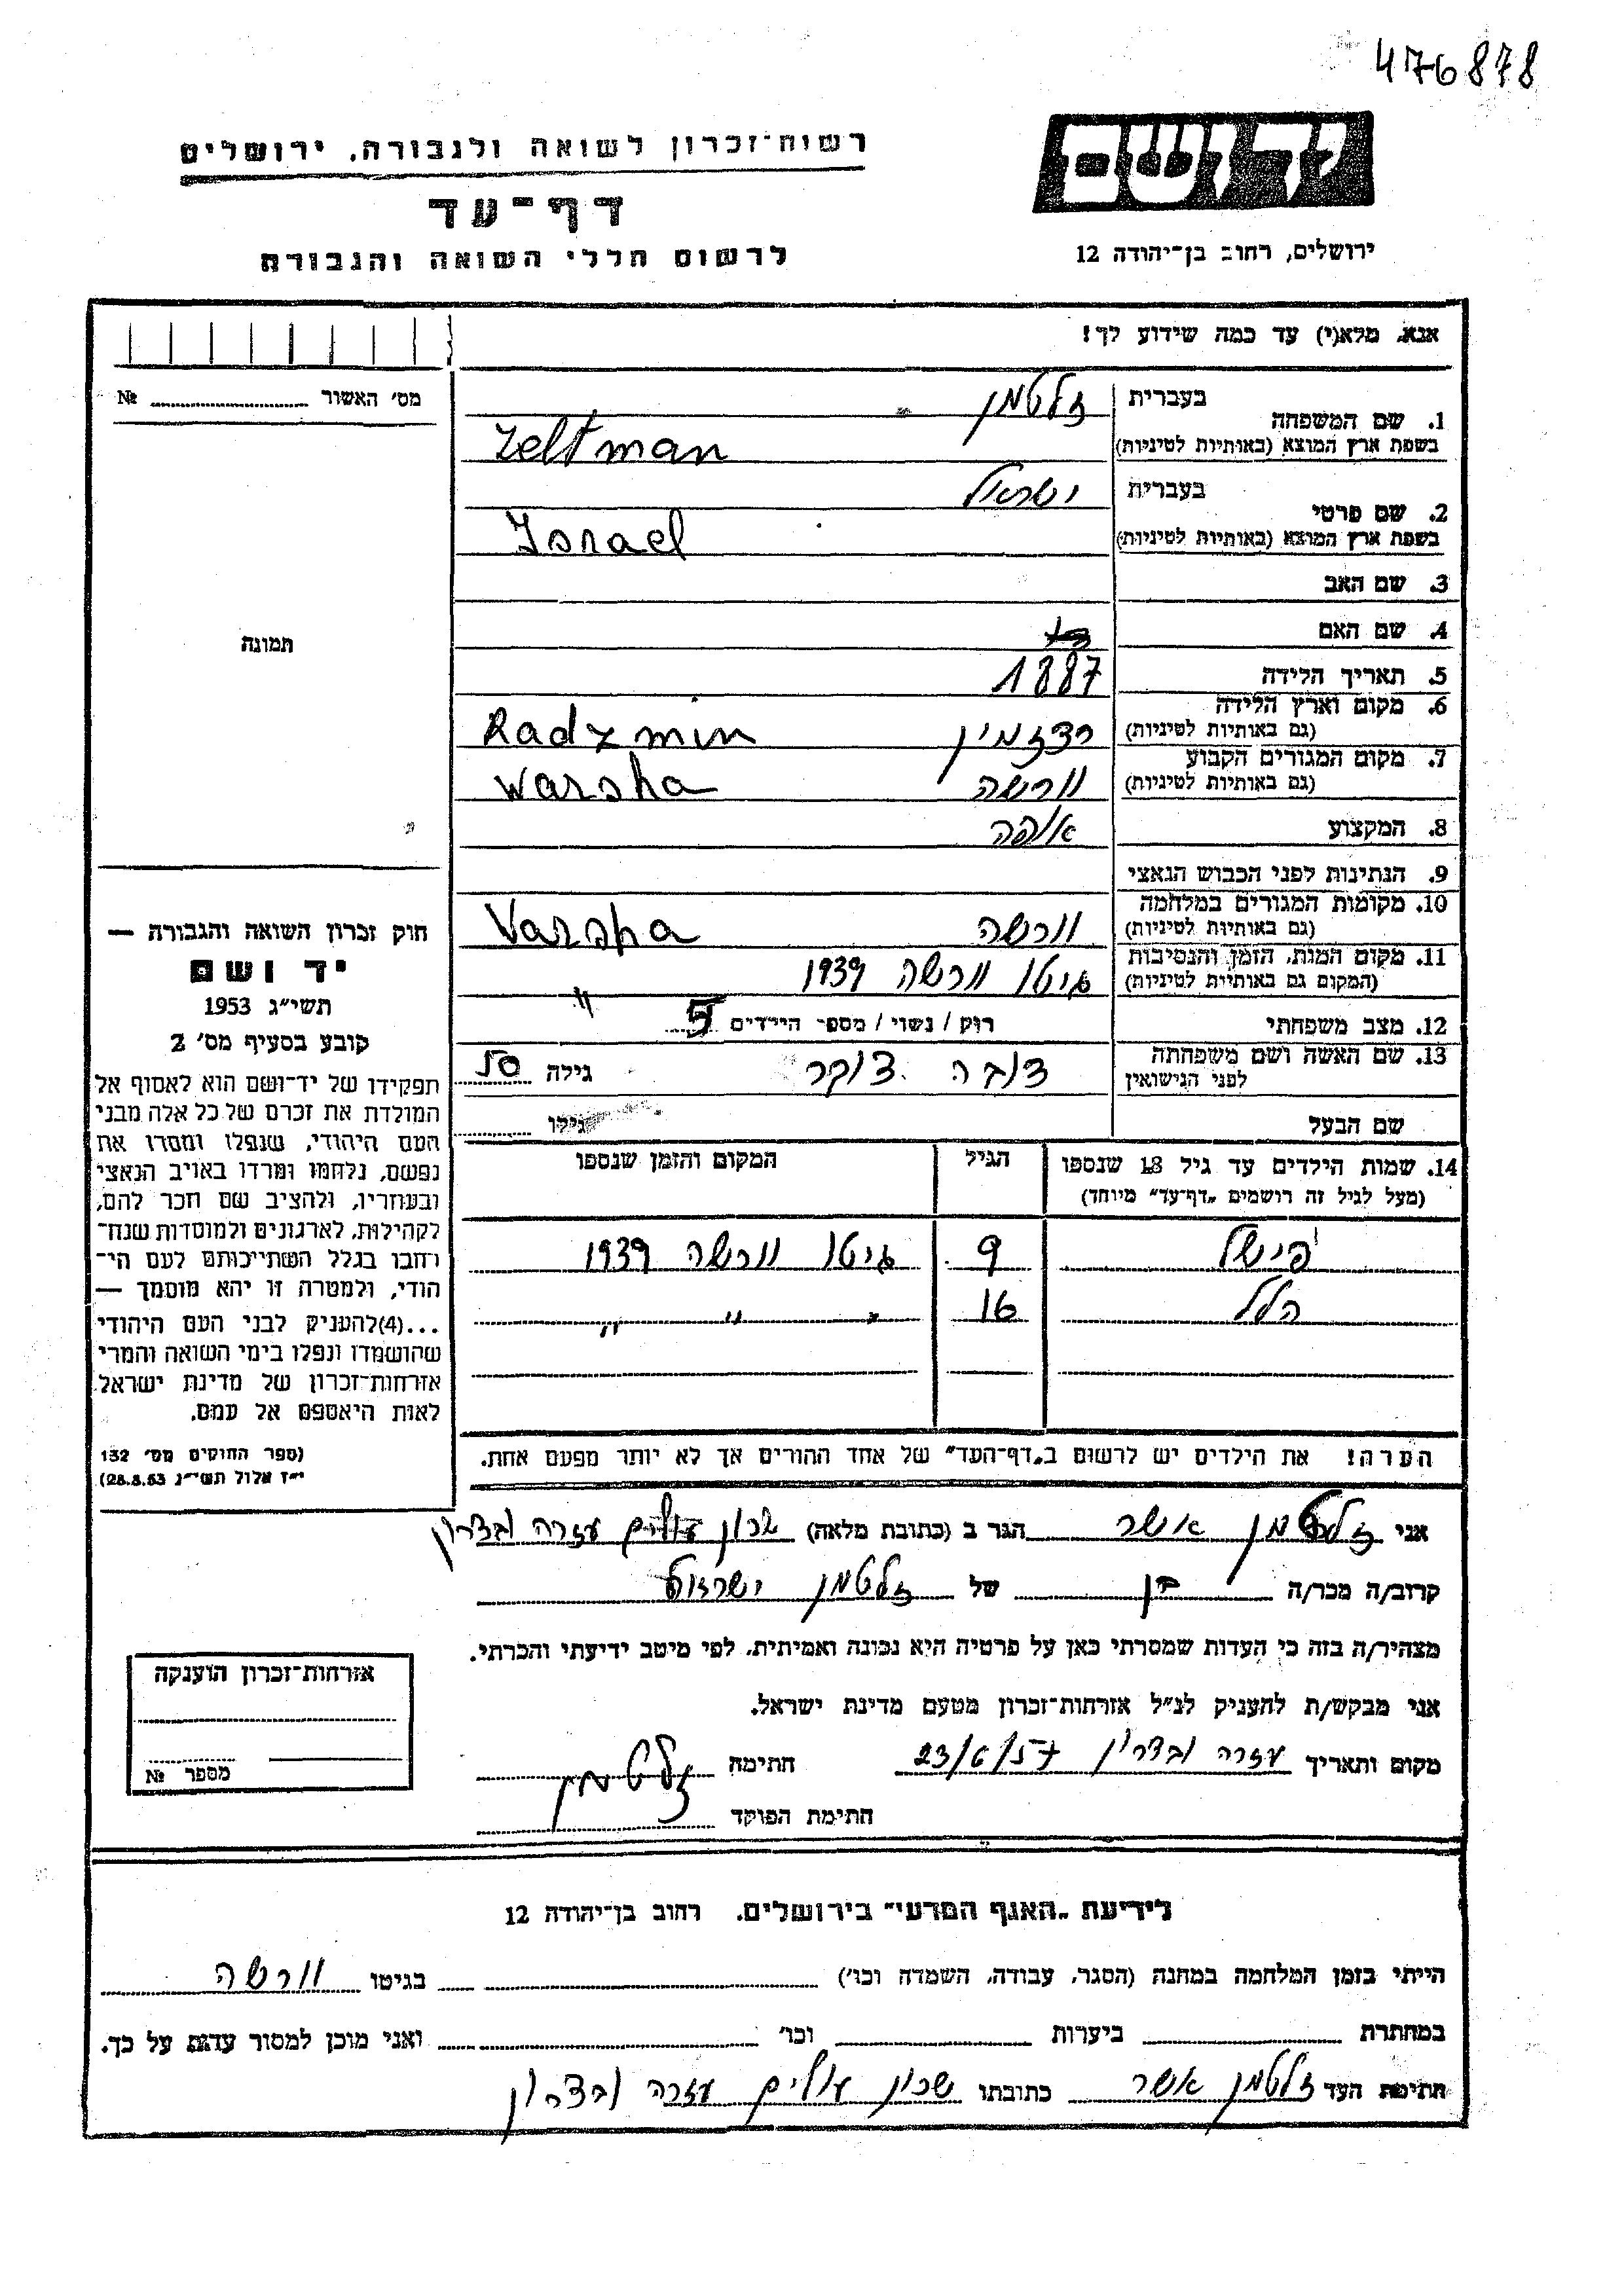 476878
ידושם
ירושלים, רחוב בן־יהודה 12
רשות־זכרון לשואה ולגבורה, ירושלים
דף־עד
לרשום חללי השואה והגבורה
אנא, מלא(י) עד כמה שידוע לך!
מס' האשור № 
1. שם המשפחה
בעברית זלטמן
בשפת ארץ המוצא (באותיות לטיניות) Zeltman
2. שם פרטי
בעברית ישראל
בשפת ארץ המוצא (באותיות לטיניות) Israel
3. שם האב
4. שם האם
5. תאריך הלידה 1887
6. מקום וארץ הלידה
(גם באותיות לטיניות) רדזמין Radzmin
7. מקום המגורים הקבוע
(גם באותיות לטיניות) וורשה Warsha
8. המקצוע אופה
9. הנתינות לפני הכבוש הנאצי
10. מקומות המגורים במלחמה
(גם באותיות לטיניות) וורשה Varsha
11. מקום המות, הזמן והנסיבות
(המקום גם באותיות לטיניות) גיטו וורשה 1939 "
12. מצב משפחתי רוק / נשוי / מספר הילדים 5
13. שם האשה ושם משפחתה
לפני הנישואין צוקר גילה 50
שם הבעל גילו
14. שמות הילדים עד גיל 18 שנספו הגיל המקום והזמן שנספו
(מעל לגיל זה רושמים "דף־עד" מיוחד)
פישל 9 גיטו וורשה 1939
הלל 16 " " "
הערה! את הילדים יש לרשום ב"דף־העד" של אחד ההורים אך לא יותר מפעם אחת.
תמונה
חוק זכרון השואה והגבורה —
יד ושם
תשי"ג 1953
קובע בסעיף מס' 2
תפקידו של יד־ושם הוא לאסוף אל
המולדת את זכרם של כל אלה מבני
העם היהודי, שנפלו ומסרו את
נפשם, נלחמו ומרדו באויב הנאצי
ובעוזריו, ולהציב שם וזכר להם,
לקהילות, לארגונים ולמוסדות שנח־
רחבו בגלל השתייכותם לעם הי־
הודי, ולמטרה זו יהא מוסמך —
...(4)להעניק לבני העם היהודי
שהושמדו ונפלו בימי השואה והמרי
אזרחות־זכרון של מדינת ישראל
לאות היאספם אל עמם.
(ספר החוקים מס' 132
י"ז אלול תשי"ג 28.8.53)
אני זלטמן אשר הגר ב (כתובת מלאה) שכון עולים עזרה ובצרון
קרוב/ה מכר/ה בן של זלטמן ישראל
מצהיר/ה בזה כי העדות שמסרתי כאן על פרטיה היא נכונה ואמיתית, לפי מיטב ידיעתי והכרתי.
אני מבקש/ת להעניק לנ"ל אזרחות־זכרון מטעם מדינת ישראל.
מקום ותאריך עזרה ובצרון 23/6/57 חתימה זלטמן
חתימת הפוקד
אזרחות־זכרון הוענקה
מספר №
לידיעת "האגף המדעי" בירושלים, רחוב בן־יהודה 12
הייתי בזמן המלחמה במחנה (הסגר, עבודה, השמדה וכו') בגיטו וורשה
במחתרת ביערות וכו' ואני מוכן למסור עדות על כך.
חתימת העד זלטמן אשר כתובתו שכון עולים עזרה ובצרון